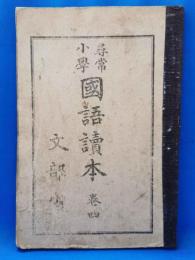 尋常
小學
國語讀本 卷四
文部